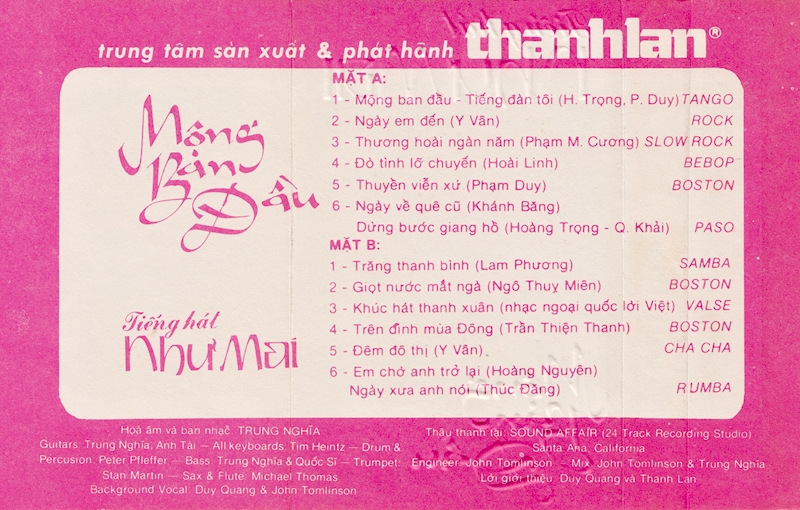 trung tâm sản xuất & phát hành thanhlan®
Mộng
Ban
Đầu
Tiếng hát
Như Mai
MẶT A:
1 - Mộng ban đầu - Tiếng đàn tôi (H. Trọng, P. Duy) TANGO
2 - Ngày em đến (Y Vân) ROCK
3 - Thương hoài ngàn năm (Phạm M. Cương) SLOW ROCK
4 - Đò tình lỡ chuyến (Hoài Linh) BEBOP
5 - Thuyền viễn xứ (Phạm Duy) BOSTON
6 - Ngày về quê cũ (Khánh Băng)
Dừng bước giang hồ (Hoàng Trọng - Q. Khải) PASO
MẶT B:
1 - Trăng thanh bình (Lam Phương) SAMBA
2 - Giọt nước mắt ngà (Ngô Thuỵ Miên) BOSTON
3 - Khúc hát thanh xuân (nhạc ngoại quốc lời Việt) VALSE
4 - Trên đỉnh mùa Đông (Trần Thiện Thanh) BOSTON
5 - Đêm đô thị (Y Vân) CHA CHA
6 - Em chớ anh trở lại (Hoàng Nguyên)
Ngày xưa anh nói (Thúc Đăng) RUMBA
Hoà âm và ban nhạc: TRUNG NGHĨA
Guitars: Trung Nghĩa, Anh Tài — All keyboards: Tim Heintz — Drum &
Percusion: Peter Pfleffer — Bass: Trung Nghĩa & Quốc Sĩ — Trumpet:
Stan Martin — Sax & Flute: Michael Thomas
Background Vocal: Duy Quang & John Tomlinson
Thâu thanh tại: SOUND AFFAIR (24 Track Recording Studio)
Santa Ana, California
Engineer: John Tomlinson — Mix: John Tomlinson & Trung Nghĩa
Lời giới thiệu: Duy Quang và Thanh Lan